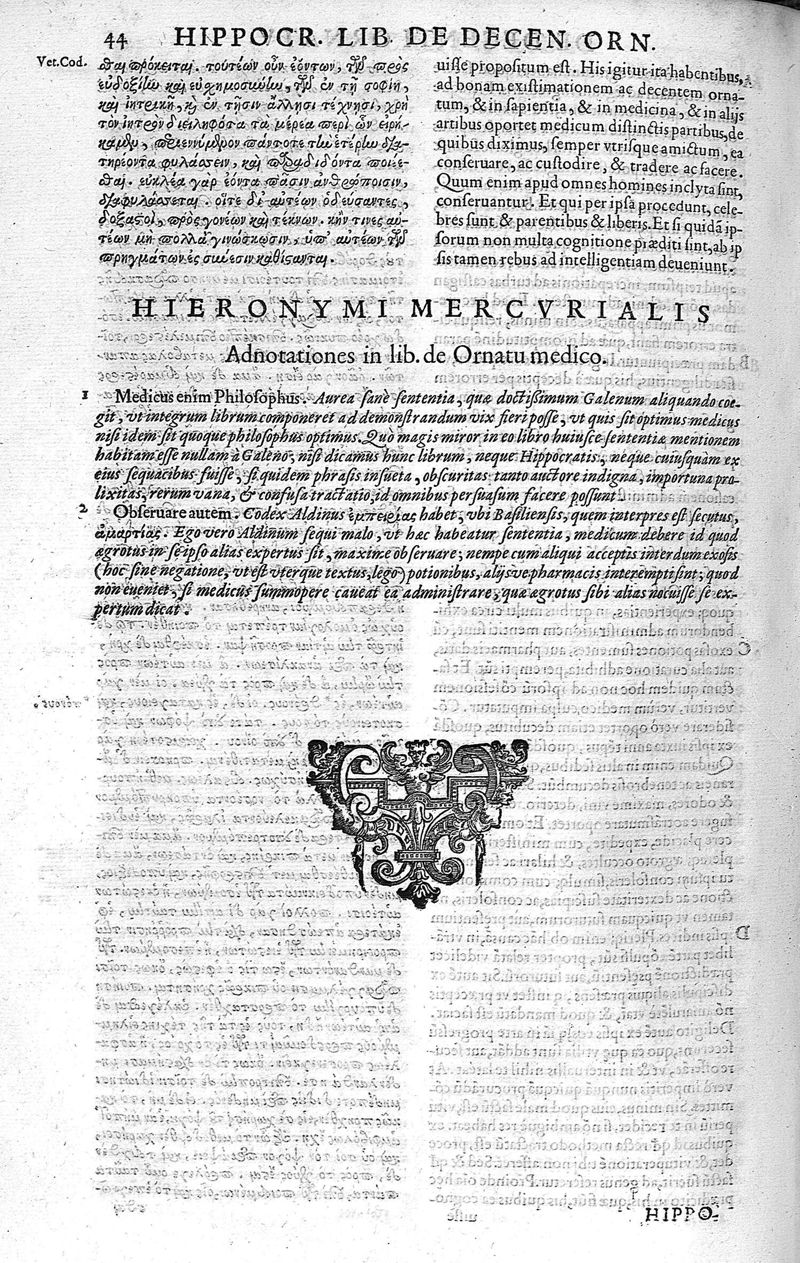 44 HIPPOCR. LIB. DE DECEN. ORN.
Vet. Cod.
θαι πρόκειται. τουτέων οὖν ἐόντων, τῶν πρὸς
εὐδοξίην καὶ εὐσχημοσύνην, τῶν ἐν τῇ σοφίῃ,
καὶ ἰητρικῇ, κ̀ ἐν τῇσιν ἄλλῃσι τέχνῃσι, χρὴ
τὸν ἰητρὸν διειληφότα τὰ μέρεα περὶ ὧν εἰρή-
καμεν, περιεννύμενον πάντοτε τὴν ἑτέρην δια-
τηρέοντα φυλάσσειν, καὶ παραδιδόντα ποιέε-
θαι. εὐκλέα γὰρ ἐόντα πᾶσιν ἀνθρώποισιν,
διαφυλάσσεται. οἵτε δι' αὐτέων ὁδεύσαντες,
δοξαστοὶ, πρὸς γονέων καὶ τέκνων. κἤν τινες αὐ-
τέων μὴ πολλὰ γινώσκωσιν, ὑπ' αὐτέων τῶν
πρηγμάτων ἐς σύνεσιν καθίστανται.
uisse propositum est. His igitur ita habentibus,
ad bonam existimationem ac decentem orna-
tum, & in sapientia, & in medicina, & in alijs
artibus oportet medicum distinctis partibus, de
quibus diximus, semper vtrisque amictum, ea
conseruare, ac custodire, & tradere ac facere.
Quum enim apud omnes homines inclyta sint,
conseruantur. Et qui per ipsa procedunt, cele-
bres sunt & parentibus & liberis. Et si quidā ip-
sorum non multa cognitione præditi sint, ab ip
sis tamen rebus ad intelligentiam deueniunt.
HIERONYMI MERCVRIALIS
Adnotationes in lib. de Ornatu medico.
1 Medicus enim Philosophus. Aurea sanè sententia, quæ doctissimum Galenum aliquando coe-
git, vt integrum librum componeret ad demonstrandum vix fieri posse, vt quis sit optimus medicus
nisi idem sit quoque philosophus optimus. Quo magis miror, in eo libro huiusce sententiæ mentionem
habitam esse nullam à Galeno, nisi dicamus hunc librum, neque Hippocratis, neque cuiusquam ex
eius sequacibus fuisse, si quidem phrasis insueta, obscuritas tanto auctore indigna, importuna pro-
lixitas, rerum vana, & confusa tractatio, id omnibus persuasum facere possunt.
2 Obseruare autem. Codex Aldinus ἐμπειρίας habet, vbi Basiliensis, quem interpres est secutus,
ἁμαρτίας. Ego vero Aldinum sequi malo, vt hæc habeatur sententia, medicum debere id quod
ægrotus in se ipso alias expertus sit, maxime obseruare; nempe cum aliqui acceptis interdum exosis
(hoc sine negatione, vt est vterque textus, lego) potionibus, alijsve pharmacis interempti sint; quod
non eueniet, si medicus summopere caueat ea administrare, quæ ægrotus sibi alias nocuisse se ex-
pertum dicat.
HIPPO-